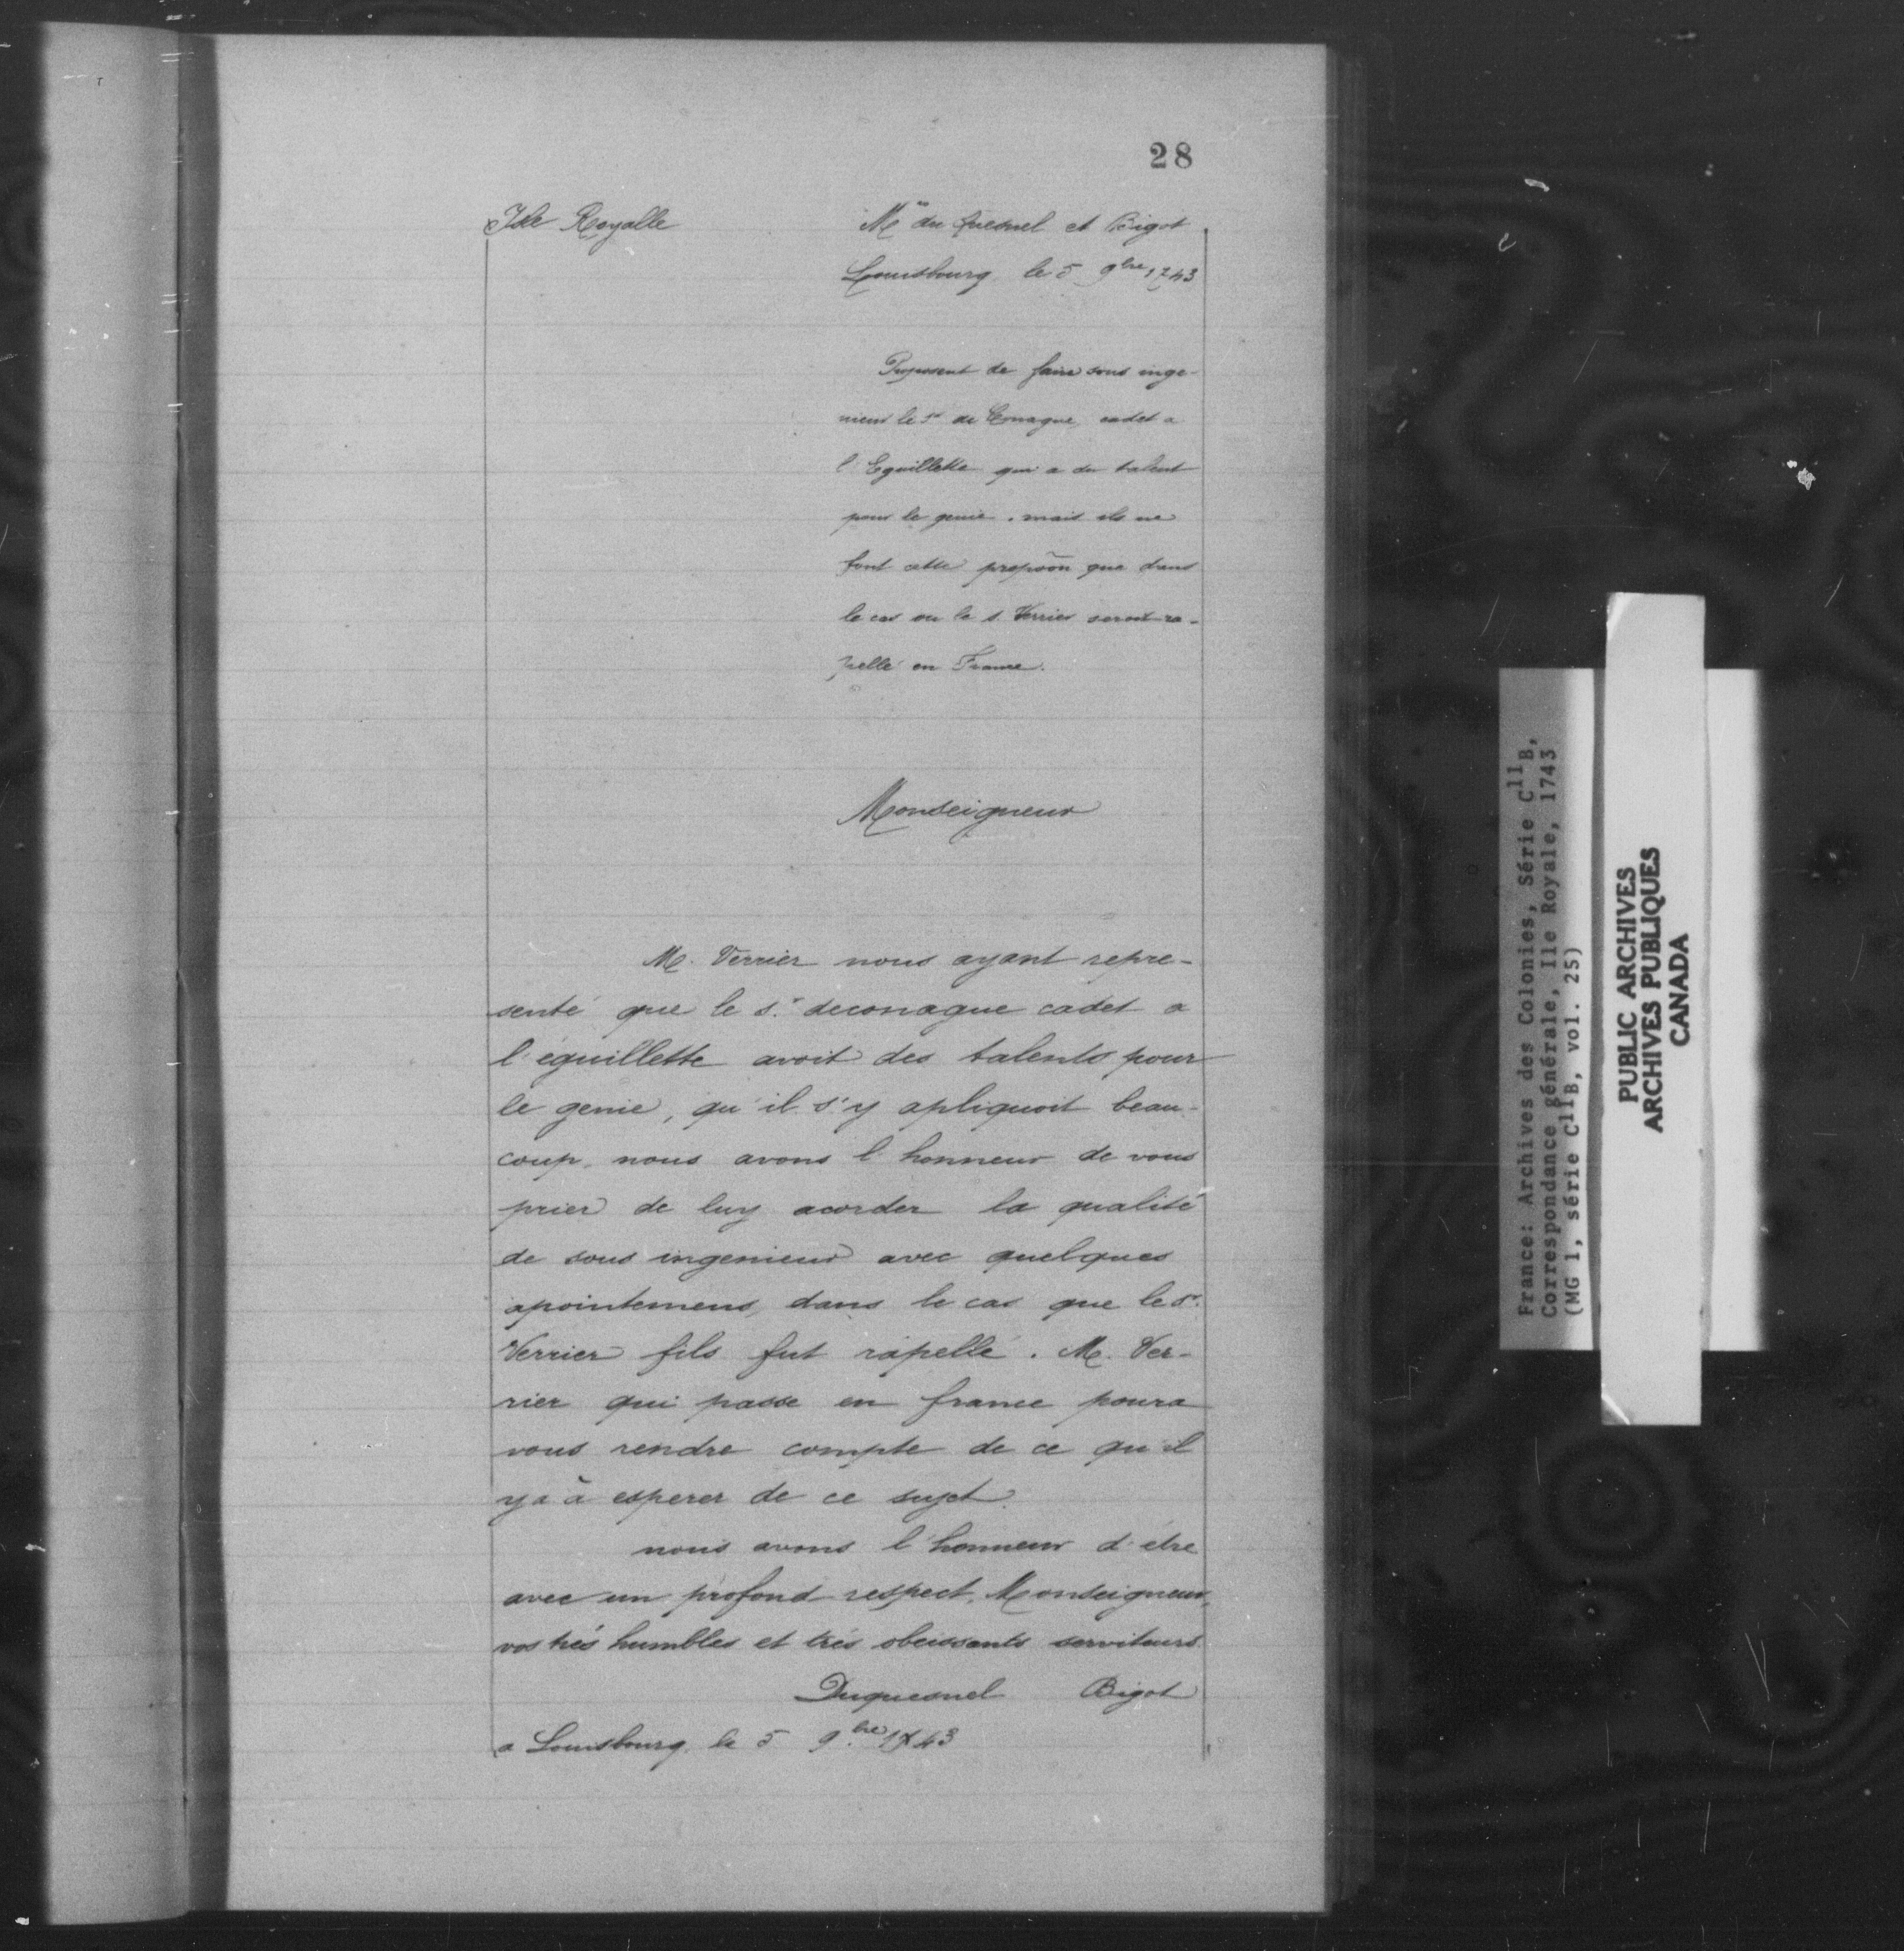 28
Isle Royalle
Mrs du Quesnel et Bigot
Louisbourg le 5 9bre 1743
Proposent de faire sous inge-
nieur le Sr de Conague, cadet a
l'Eguillette qui a du talent
pour le genie, mais ils ne
font cette propoõn que dans
le cas ou le s. Verrier seroit ra-
pellé en France.
Monseigneur
M. Verrier nous ayant repre-
senté que le s.r deconague cadet a
l'éguillette avoit des talents pour
le genie, qu'il s'y apliquoit beau-
coup, nous avons l'honneur de vous
prier de luy acorder la qualité
de sous ingenieur avec quelques
apointemens, dans le cas que le sr.
Verrier fils fut rapellé. M. Ver-
rier qui passe en france poura
vous rendre compte de ce qu'il
y a à esperer de ce sujet.
nous avons l'honneur d'être
avec un profond respect, Monseigneur,
vos trés humbles et trés obeissants serviteurs
Duquesnel Bigot
a Louisbourg, le 5 9.bre 1743
France: Archives des Colonies, Série C11B,
Correspondance générale, Ile Royale, 1743
(MG 1, série C11B, vol. 25)
PUBLIC ARCHIVES
ARCHIVES PUBLIQUES
CANADA